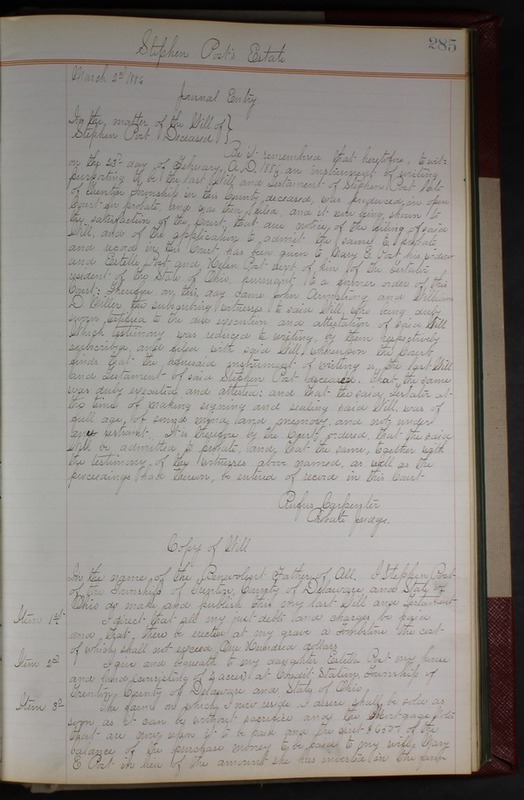 285
Stephen Post's Estate
March 2nd 1886
Journal Entry
In the matter of the Will of
Stephen Post Deceased
Be it remembered that heretofore, to wit:
on the 23rd day of February, A.D. 1886 an instrument of writing
purporting to be the last Will and testament of Stephen Post late
of Trenton Township in this County deceased, was produced in open
Court for probate and was then filed, and it now being shown to
the satisfaction of the Court, that due notice of the filing of said
Will, and of the application to admit the same to probate
and record in this Court has been given to Mary E. Post his widow
and Estella Post and Helen Post next of kin of the testator
resident of the State of Ohio, pursuant to a former order of this
Court: Thereupon on this day came John Armstrong and William
D. Miller the subscribing witnesses to said Will, who being duly
sworn testified to the due execution and attestation of said Will
Which testimony was reduced to writing, by them respectively
subscribed and filed with said Will, whereupon the Court
finds that the aforesaid instrument of writing is the last Will
and testament of said Stephen Post deceased. That the same
was duly executed and attested; and that the said testator at
the time of making signing and sealing said Will, was of
full age, of sound mind and memory, and not under
any restraint. It is therefore by the Court ordered, that the said
Will be admitted to probate, and, that the same, together with
the testimony of the witnesses above named, as well as the
proceedings had therein, be entered of record in this Court
Rufus Carpenter
Probate Judge.
Copy of Will
In the name of the Benevolent Father of All. I Stephen Post
of the Township of Trenton, County of Delaware and State of
Ohio do make and publish this my last Will and testament
Item 1st I direct that all my just debts and charges be paid
and that there be erected at my grave a tombstone the cost
of which shall not exceed One Hundred dollars
Item 2nd I give and bequeath to my daughter Estella Post my house
and land consisting of 2 acres at Condit Station, Township of
Trenton, County of Delaware and State of Ohio
Item 3rd The farm on which I now reside I desire shall be sold as
soon as it can be without sacrifice and the Mortgage
that are now upon it to be paid and the
balance of the purchase money to be paid to my wife, Mary
E Post in lieu of the amount she has invested in the